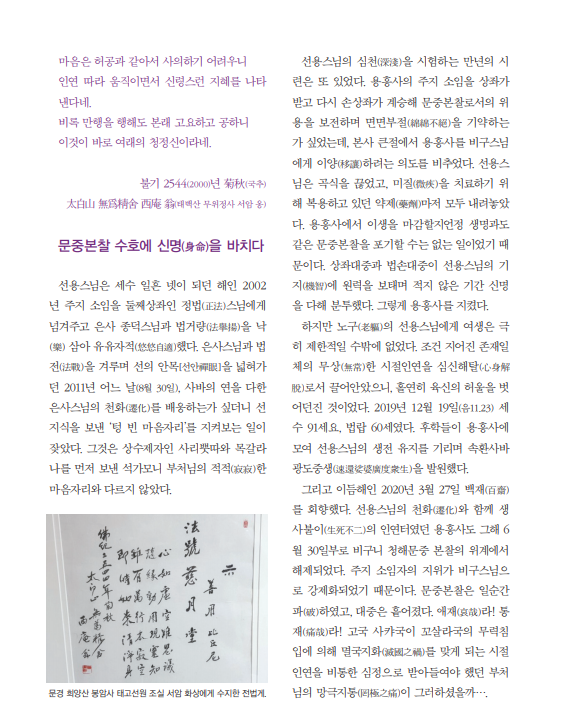 마음은 허공과 같아서 사의하기 어려우니
인연 따라 움직이면서 신령스런 지혜를 나타
낸다네.
비록 만행을 행해도 본래 고요하고 공하니
이것이 바로 여래의 청정신이라네.
불기 2544(2000)년 菊秋(국추)
太白山 無爲精舍 西庵 翁(태백산 무위정사 서암 옹)
문중본찰 수호에 신명(身命)을 바치다
선용스님은 세수 일흔 넷이 되던 해인 2002
년 주지 소임을 둘째상좌인 정법(正法)스님에게
넘겨주고 은사 종덕스님과 법거량(法擧揚)을 낙
(樂) 삼아 유유자적(悠悠自適)했다. 은사스님과 법
전(法戰)을 겨루며 선의 안목[선안禪眼]을 넓혀가
던 2011년 어느 날(8월 30일), 사바의 연을 다한
은사스님의 천화(遷化)를 배웅하는가 싶더니 선
지식을 보낸 ‘텅 빈 마음자리’를 지켜보는 일이
잦았다. 그것은 상수제자인 사리뿟따와 목갈라
나를 먼저 보낸 석가모니 부처님의 적적(寂寂)한
마음자리와 다르지 않았다.
示
善用 比丘尼
法號 慈月堂
心如虛空難思議
隨緣動用現靈知
雖有萬行本寂空
卽時如來清淨身
佛紀二五四四年菊秋
太白山 無爲精舍
西庵 翁
문경 희양산 봉암사 태고선원 조실 서암 화상에게 수지한 전법게.
선용스님의 심천(深淺)을 시험하는 만년의 시
련은 또 있었다. 용흥사의 주지 소임을 상좌가
받고 다시 손상좌가 계승해 문중본찰로서의 위
용을 보전하며 면면부절(綿綿不絕)을 기약하는
가 싶었는데, 본사 큰절에서 용흥사를 비구스님
에게 이양(移讓)하려는 의도를 비추었다. 선용스
님은 곡식을 끊었고, 미질(微疾)을 치료하기 위
해 복용하고 있던 약제(藥劑)마저 모두 내려놓았
다. 용흥사에서 이생을 마감할지언정 생명과도
같은 문중본찰을 포기할 수는 없는 일이었기 때
문이다. 상좌대중과 법손대중이 선용스님의 기
지(機智)에 원력을 보태며 적지 않은 기간 신명
을 다해 분투했다. 그렇게 용흥사를 지켰다.
하지만 노구(老軀)의 선용스님에게 여생은 극
히 제한적일 수밖에 없었다. 조건 지어진 존재일
체의 무상(無常)한 시절인연을 심신해탈(心·身解
脫)로서 끌어안았으니, 홀연히 육신의 허울을 벗
어던진 것이었다. 2019년 12월 19일(음11.23) 세
수 91세요, 법랍 60세였다. 후학들이 용흥사에
모여 선용스님의 생전 유지를 기리며 속환사바
광도중생(速還娑婆廣度衆生)을 발원했다.
그리고 이듬해인 2020년 3월 27일 백재(百齋)
를 회향했다. 선용스님의 천화(遷化)와 함께 생
사불이(生死不二)의 인연터였던 용흥사도 그해 6
월 30일부로 비구니 청해문중 본찰의 위계에서
해제되었다. 주지 소임자의 지위가 비구스님으
로 강제화되었기 때문이다. 문중본찰은 일순간
파(破)하였고, 대중은 흩어졌다. 애재(哀哉)라! 통
재(痛哉)라! 고국 사캬국이 꼬살라국의 무력침
입에 의해 멸국지화(滅國之禍)를 맞게 되는 시절
인연을 비통한 심정으로 받아들여야 했던 부처
님의 망극지통(罔極之痛)이 그러하셨을까….